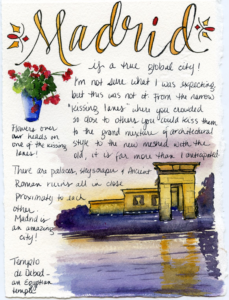 Madrid
is a true global city!
I'm not sure what I was expecting
but this was not it. From the narrow
"kissing lanes" where you crowded
so close to others you could kiss them
to the grand mixture of architectural
style to the new meshed with the
old, it is far more than I anticipated.
Flowers over
our heads on
one of the kissing
lanes!
There are palaces, skyscrapers & Ancient
Roman ruins all in close
proximity to each
other.
Madrid is
an amazing
city!
Templo
de Debod -
an Egyptian
temple